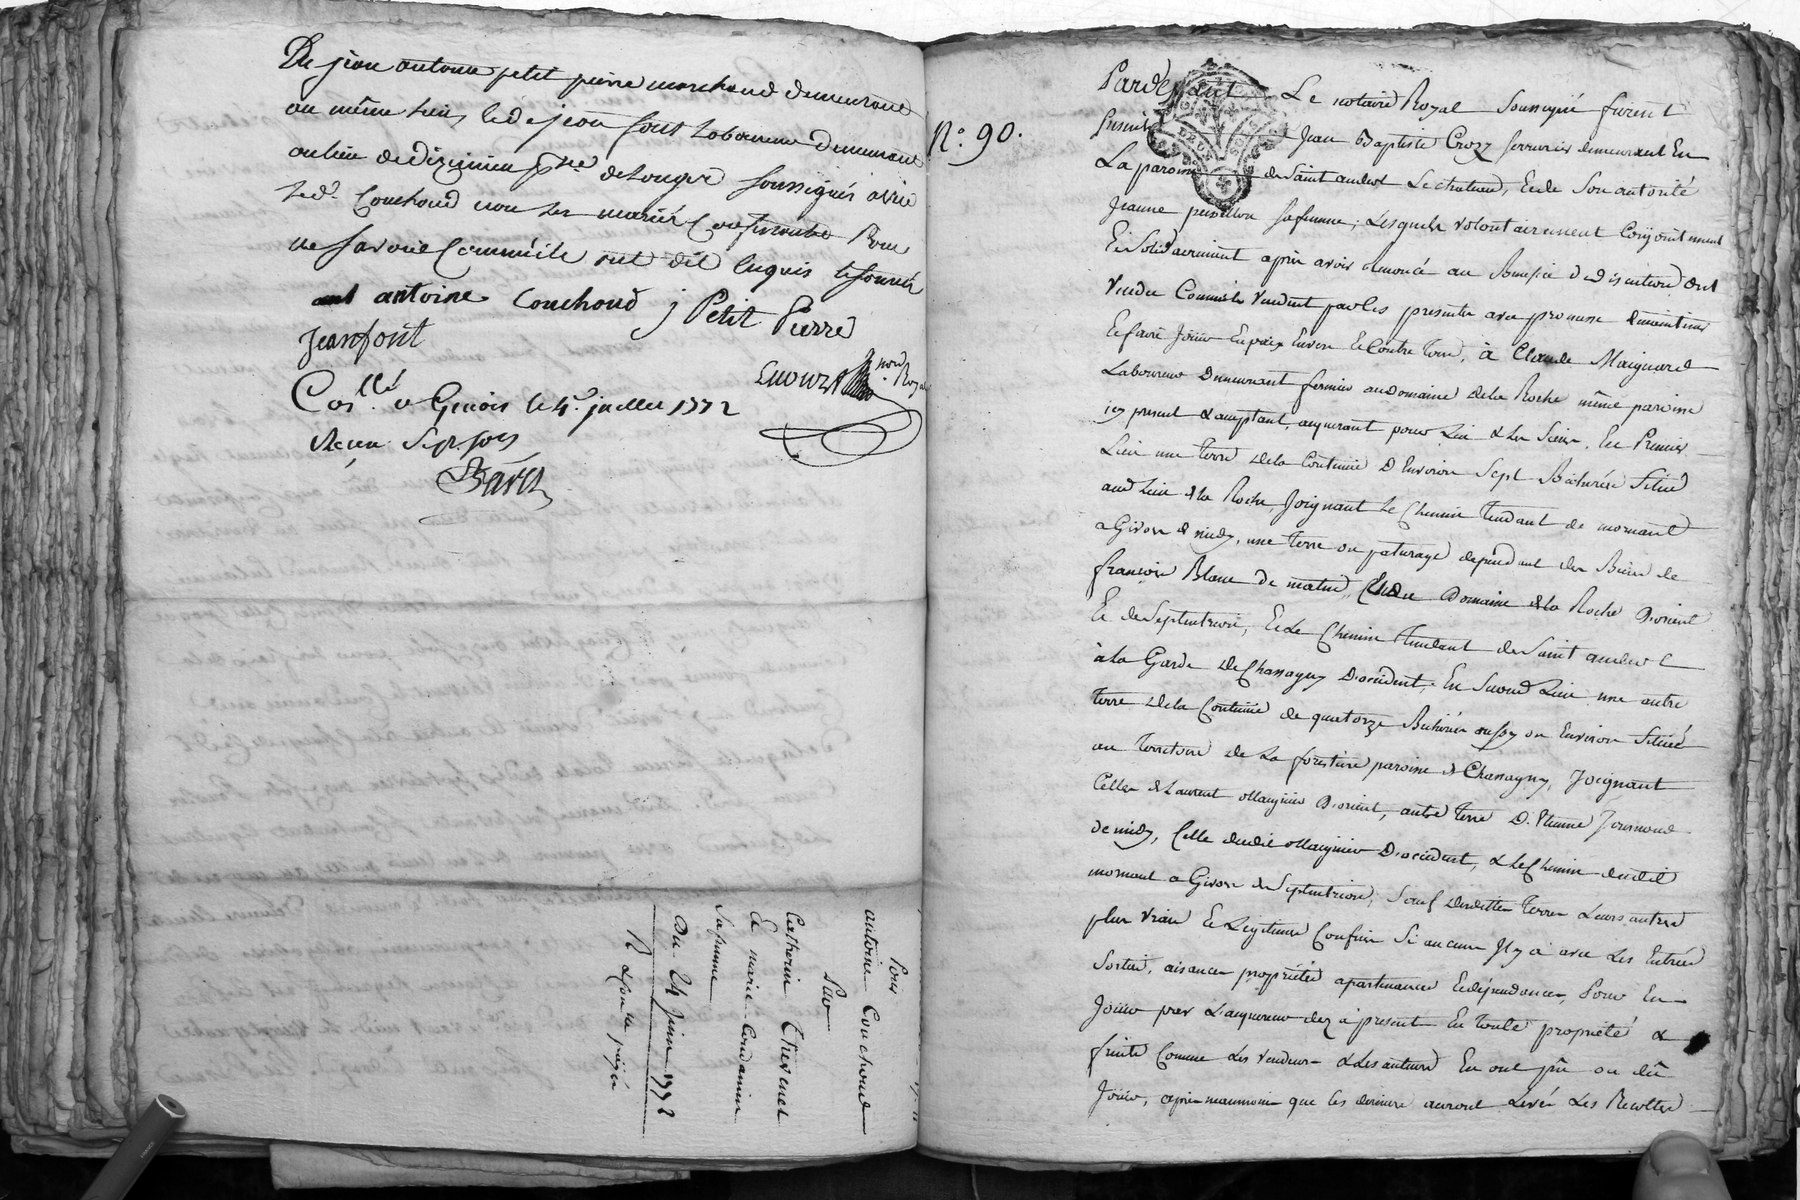 De jean antoine petit pierre marchand demeurant
au même lieu, & de jean font laboureur demeurant
au lieu de dizimieu psse de Longes soussignés avec
led. Couchoud non les mariés Couturier pour
ne savoir comme ils ont dit enquis & sommés
antoine Couchoud j Petit Pierre
jean font
not. Roy.
Con.llé a Givors le 4e. juillet 1772
Reçu sept sols
Baret
Pour
antoine Couchoud
Sur
Catherin Thevenet
Et marie Condamin
Sa femme
Du 24 Juin 1772
N.o 90.
Pardevant Le notaire Royal Soussigné furent
Presents Jean Baptiste Crozy serrurier demeurant En
La paroisse de Saint andeol Le chateau, Et de Son autorité
Jeanne sa femme, Lesquels volontairement Conjointement
Et Solidairement après avoir Renoncé au Benefice de Discution ont
Vendu Comme ils Vendent par Ces presentes avec promesse de maintenir
Et faire Jouir En paix Envers Et Contre Tous, à Claude Maignard
Laboureur Demeurant fermier au Domaine de La Roche même paroisse
icy present & acceptant, acquerant pour Lui & Les Siens. En Premier
Lieu une Terre de la Contenue D'Environ Sept Bicherées Située
aud Lieu de La Roche, Joignant Le Chemin Tendant de mornant
a Givors de midy, une Terre ou paturage dependant des Biens de
françois Blanc de matin, Celle du Domaine de La Roche D'orient
Et de Septentrion, Et Le Chemin Tendant de Saint andeol
à La Garde de Chassagny D'occident, En Second Lieu une autre
Terre de La Contenue de quatorze Bicherées aussy ou Environ Située
au Territoire de La forestiere paroisse de Chassagny, Joignant
Celle de Laurent D'orient, autre Terre D'Etienne Journoud
de midy, Celle dudit D'occident, & Le Chemin dudit
mornant a Givors de Septentrion, Sauf desdittes Terres Leurs autres
plus Vrais Et Legitimes Confins Si aucuns Il y a avec Les Entrées
Sorties, aisances proprietés apartenances Et dependances, Pour En
Jouir par L'acquereur dez a present En toute proprieté &
fruits Comme Les Vendeurs & Les auteurs En ont pû ou dû
Jouir, après neanmoins que Les derniers auront Levés Les Recoltes